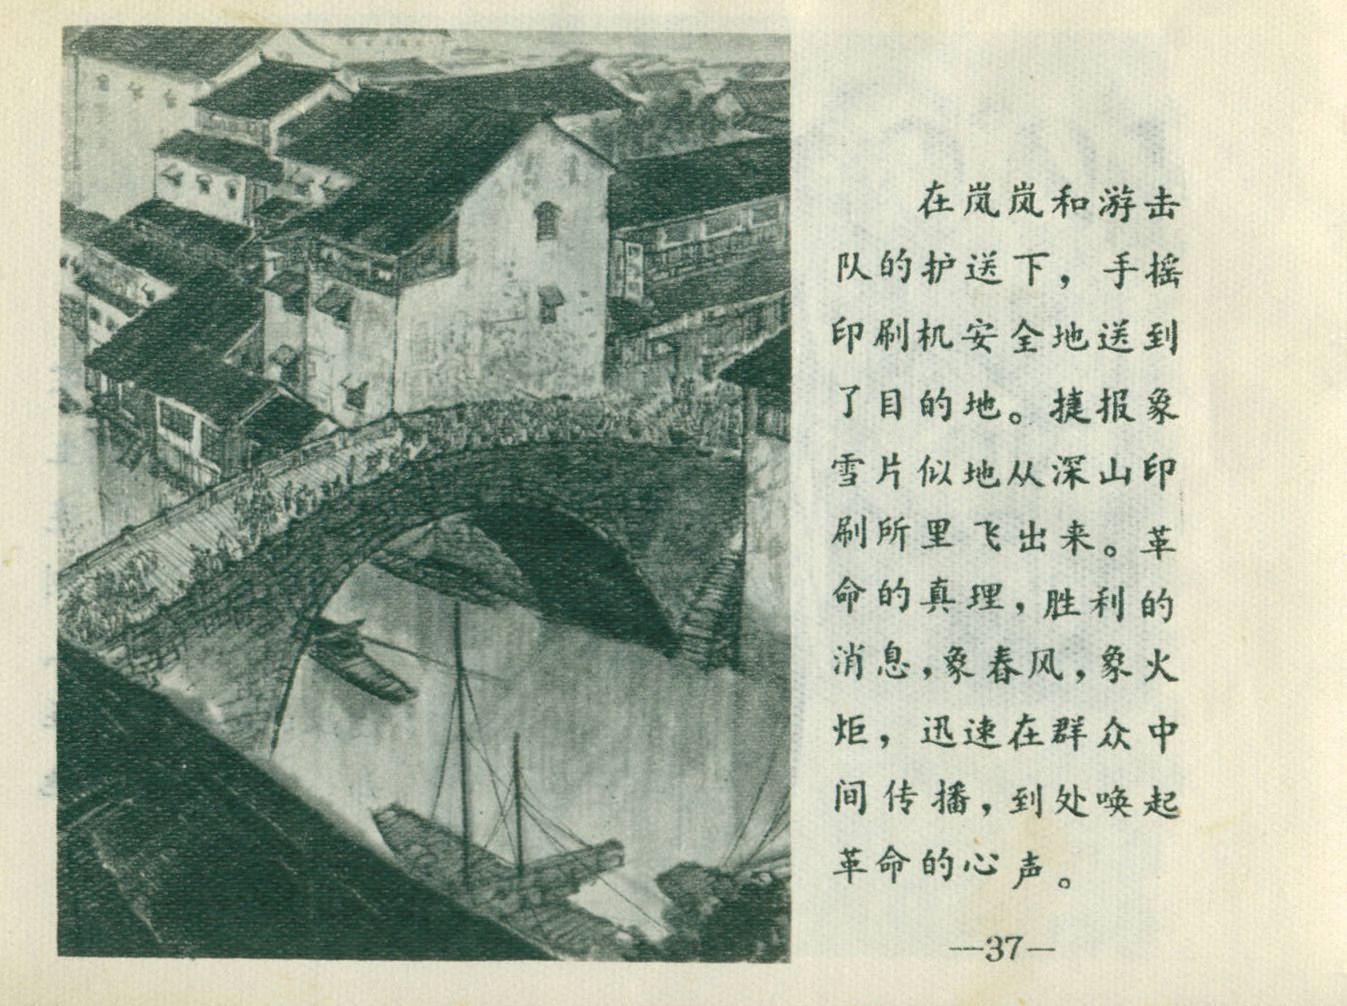 在岚岚和游击
队的护送下，手摇
印刷机安全地送到
了目的地。捷报象
雪片似地从深山印
刷所里飞出来。革
命的真理，胜利的
消息，象春风，象火
炬，迅速在群众中
间传播，到处唤起
革命的心声。
—37—